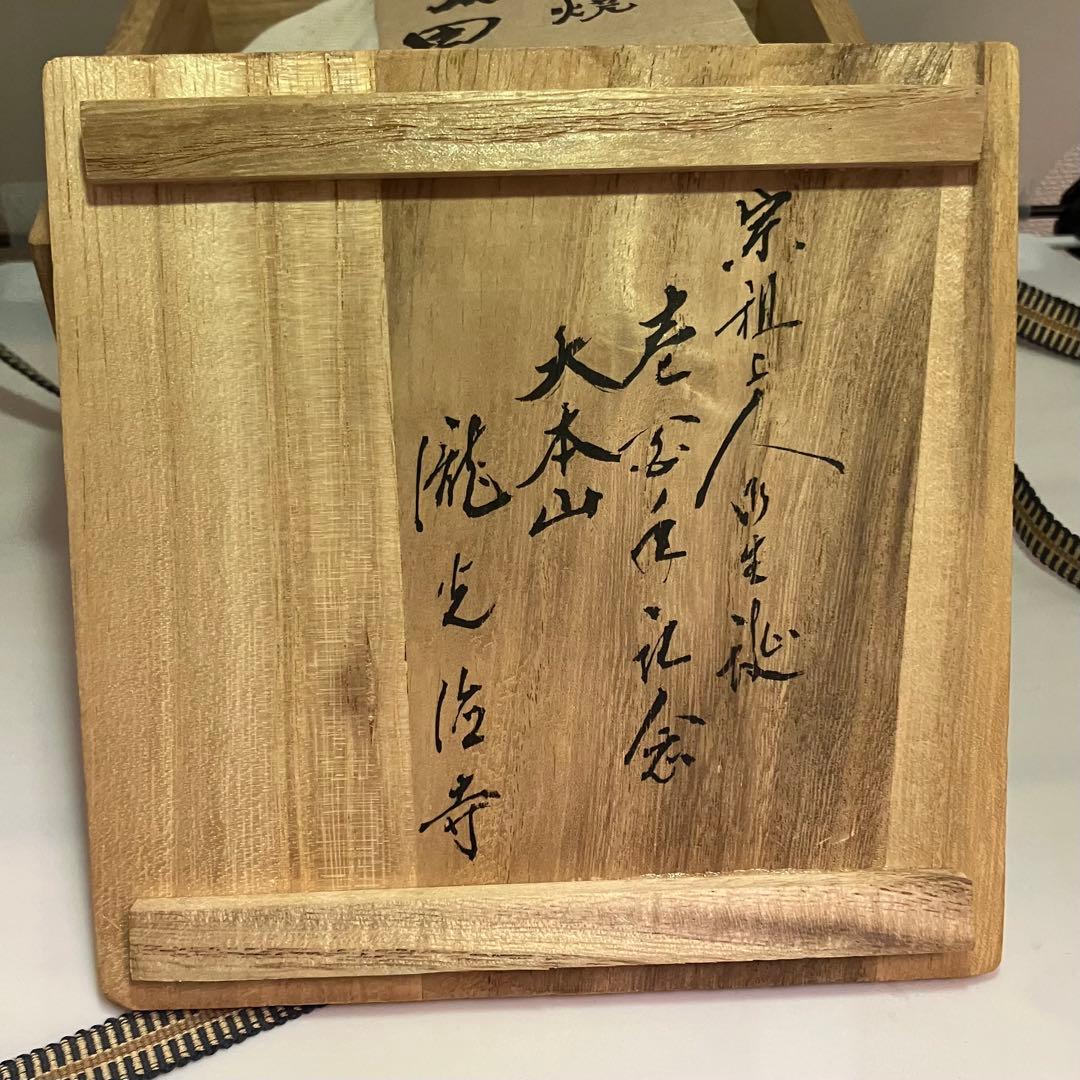 焼
田
宗祖上人御生誕
壱百年記念
大本山
瀧光徳寺